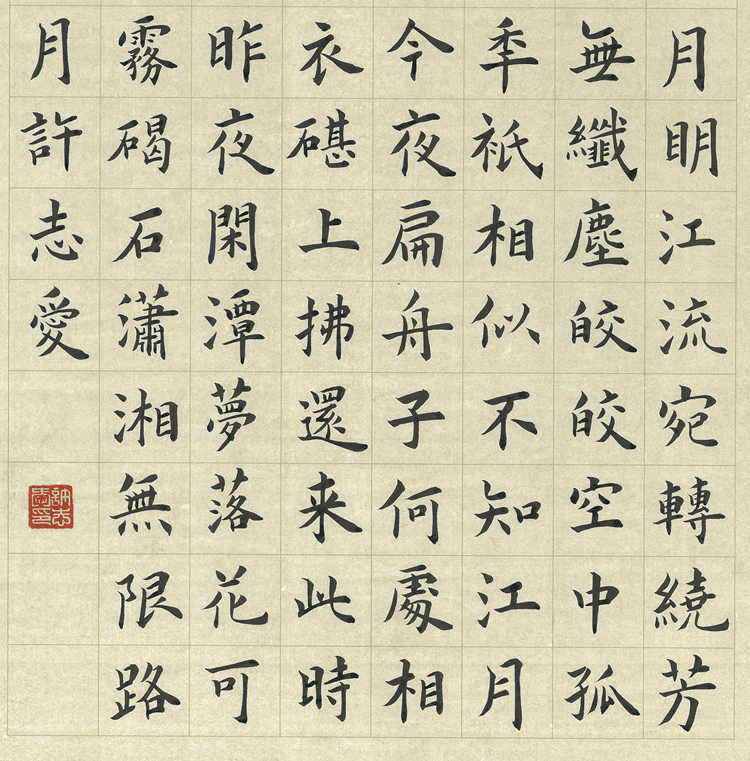 月明江流宛轉繞芳
無纖塵皎皎空中孤
年祇相似不知江月
今夜扁舟子何處相
衣碪上拂還来此時
昨夜閑潭夢落花可
霧碣石瀟湘無限路
月許志愛